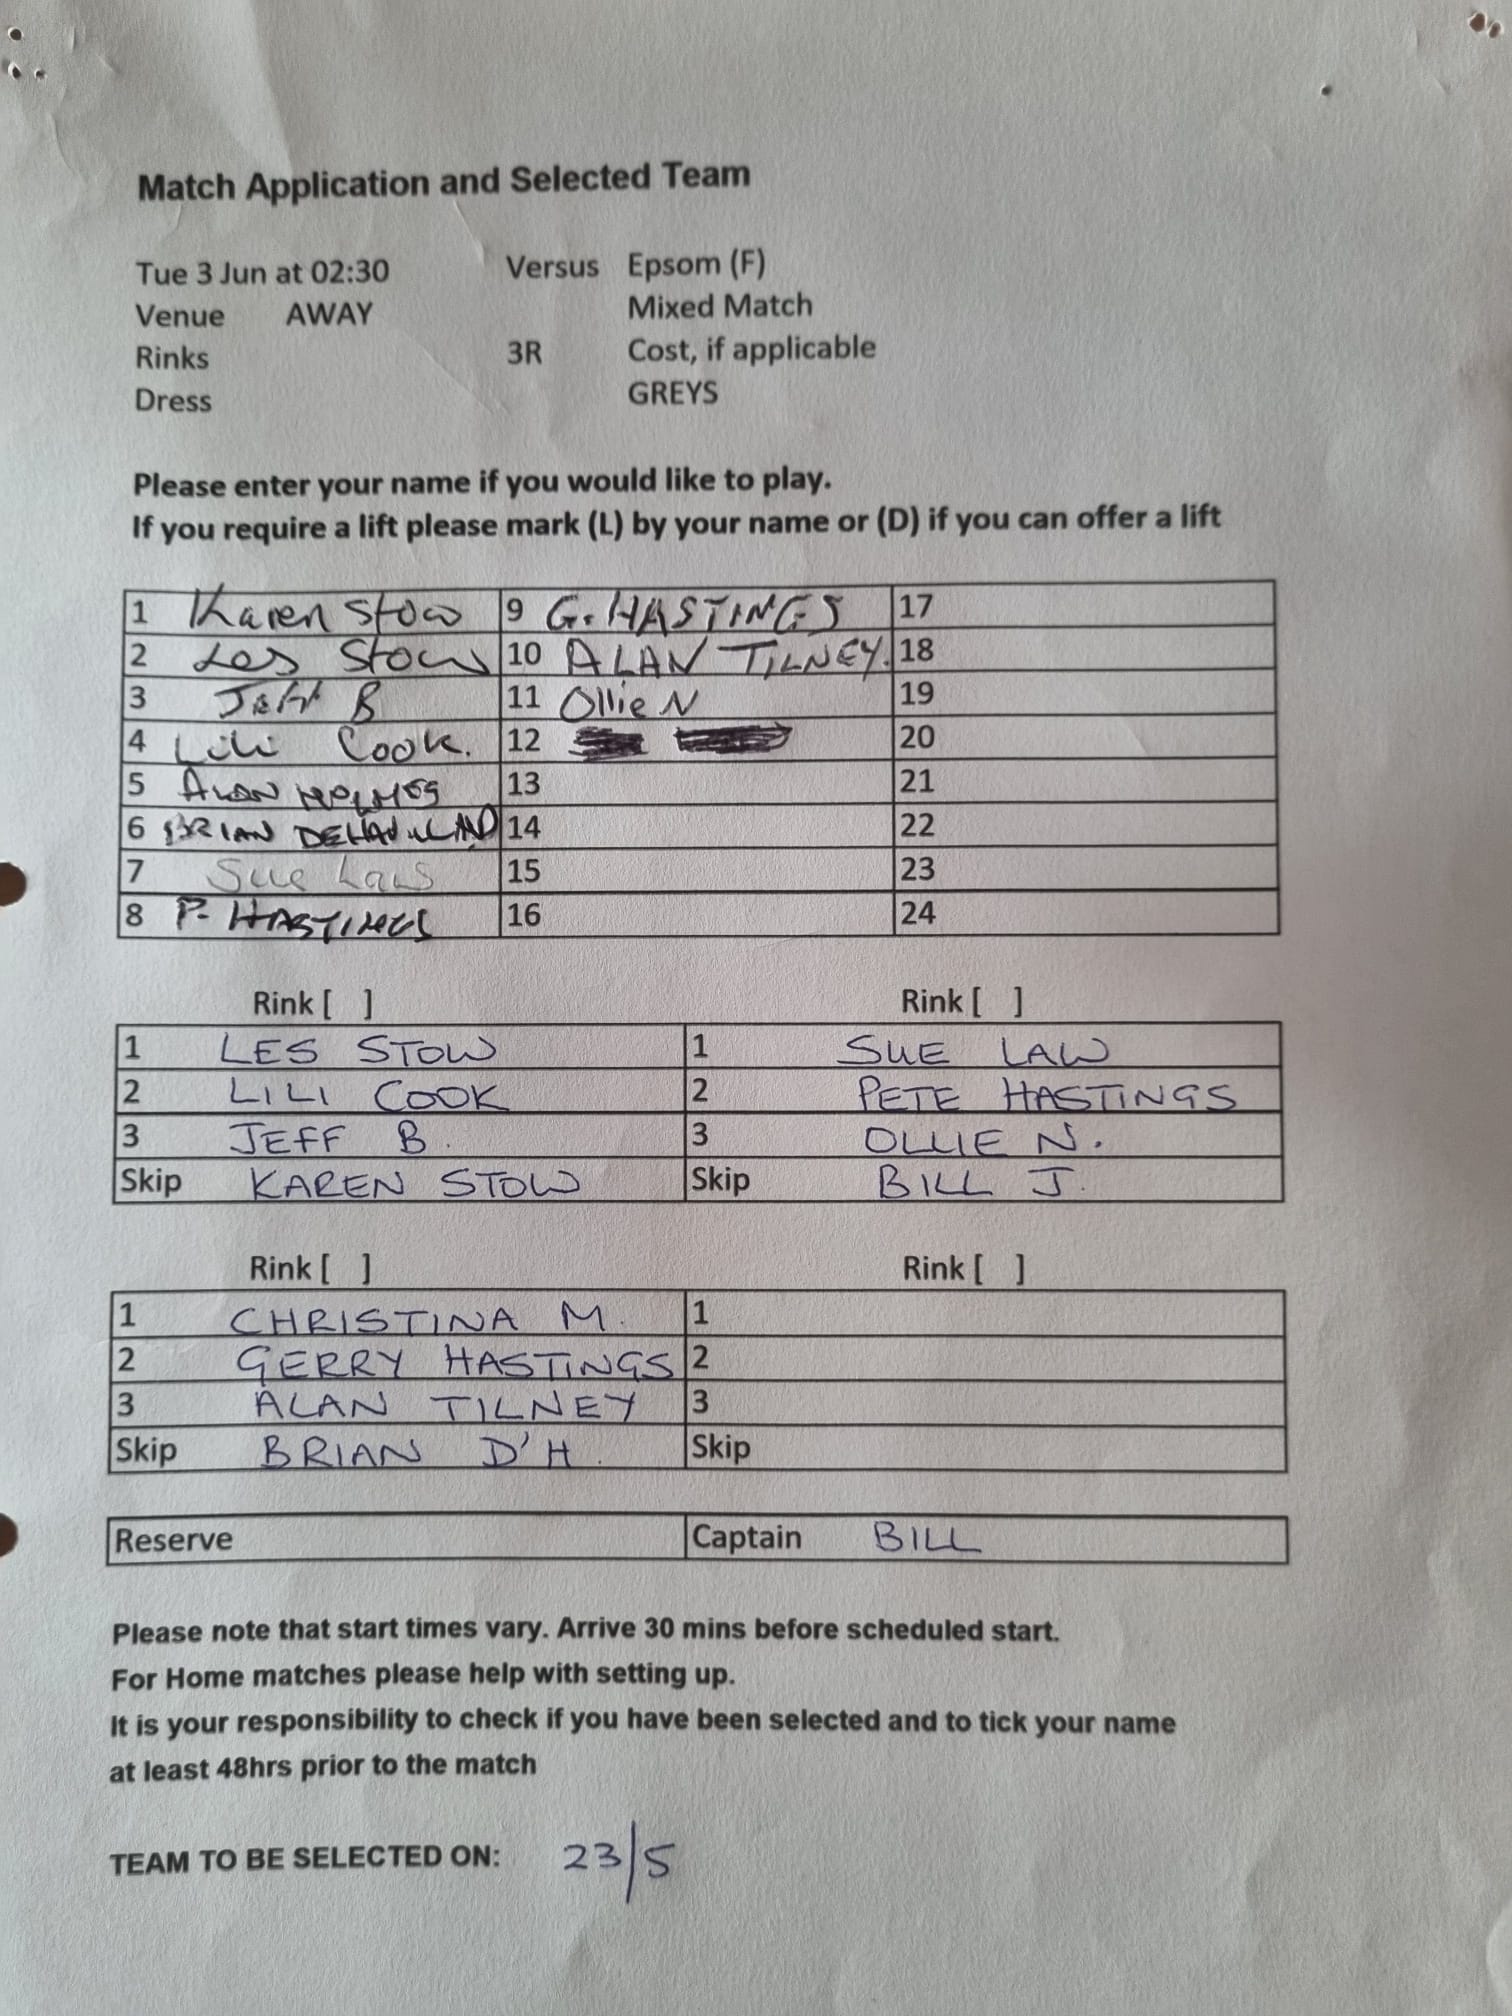 Match Application and Selected Team
Tue 3 Jun at 02:30 Versus Epsom (F)
Venue AWAY Mixed Match
Rinks 3R Cost, if applicable
Dress GREYS
Please enter your name if you would like to play.
If you require a lift please mark (L) by your name or (D) if you can offer a lift
1 Karen Stow 9 G. HASTINGS 17
2 Les Stow 10 ALAN TILNEY. 18
3 Jeff B 11 Ollie N 19
4 Lili Cook. 12 20
5 ALAN HOLMES 13 21
6 BRIAN DEHAVILLAND 14 22
7 Sue Law 15 23
8 P- HASTINGS 16 24
Rink [ ] Rink [ ]
1 LES STOW 1 SUE LAW
2 LILI COOK 2 PETE HASTINGS
3 JEFF B. 3 OLLIE N.
Skip KAREN STOW Skip BILL J.
Rink [ ] Rink [ ]
1 CHRISTINA M. 1
2 GERRY HASTINGS 2
3 ALAN TILNEY 3
Skip BRIAN D'H. Skip
Reserve Captain BILL
Please note that start times vary. Arrive 30 mins before scheduled start.
For Home matches please help with setting up.
It is your responsibility to check if you have been selected and to tick your name
at least 48hrs prior to the match
TEAM TO BE SELECTED ON: 23/5